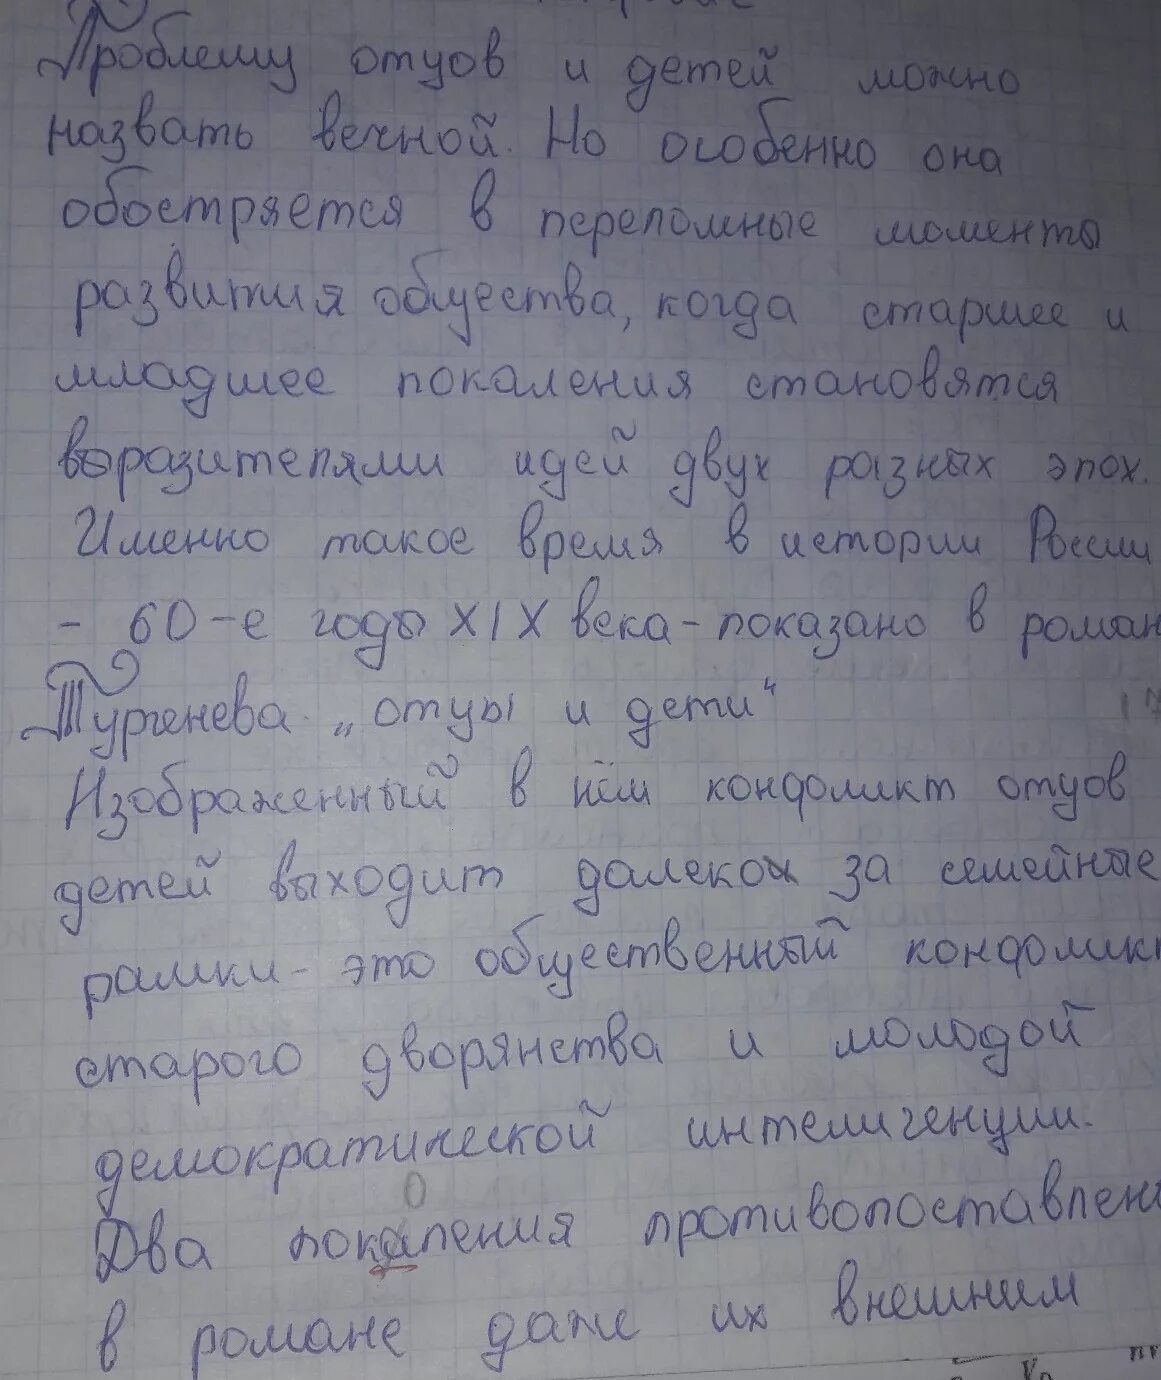 Проблему отцов и детей можно
назвать вечной. Но особенно она
обостряется в переломные моменты
развития общества, когда старшее и
младшее покаления становятся
выразителями идей двух разных эпох.
Именно такое время в истории России
- 60-е годы XIX века - показано в роман
Тургенева „отцы и дети“
Изображенный в нём конфликт отцов
детей выходит далеко за семейные
рамки - это общественный конфликт
старого дворянства и молодой
демократической интелигенции.
Два покаления противопоставлен
о
в романе даже их внешним